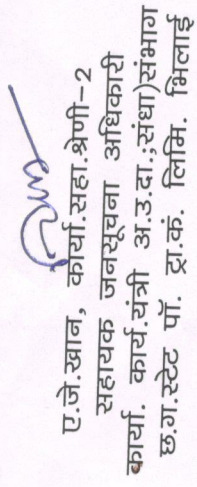 ए.जे.खान, कार्या.सहा.श्रेणी-2
सहायक जनसूचना अधिकारी
कार्या. कार्य.यंत्री अ.उ.दा.;संधा)संभाग
छ.ग.स्टेट पॉ. ट्रा.कं. लिमि. भिलाई